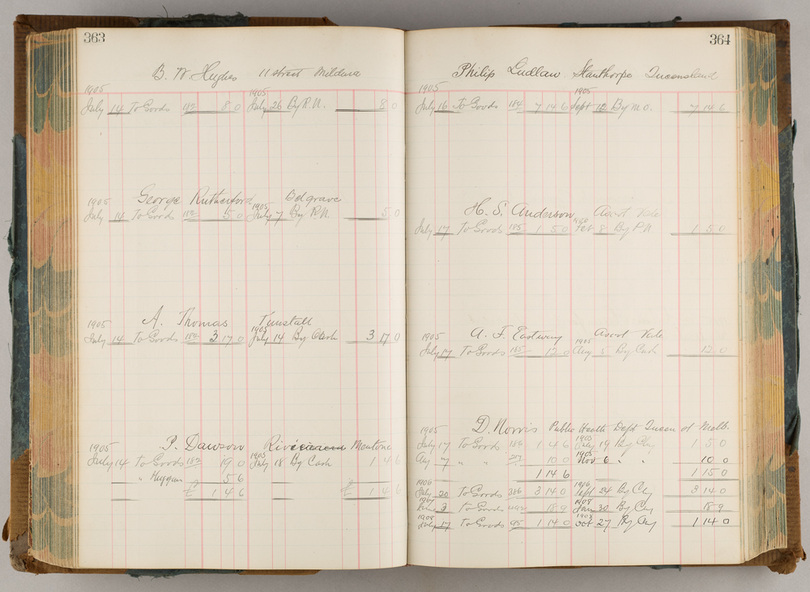 363
B. W Hughes 11 street Mildura
1905 1905
July 14 To Goods 182 8 0 July 26 By P.N. 8 0
George Rutherford Belgrave
1905 1905
July 14 To Goods 182 5 0 July 7 By P.N 5 0
A. Thomas Tunstall
1905 1905
July 14 To Goods 182 3 17 0 July 14 By Cash 3 17 0
P. Dawson Mentone
1905 1905
July 14 To Goods 182 19 0 July 18 By Cash 1 4 6
" 5 6
£ 1 4 6 £ 1 4 6
364
Philip Ludlaw Stanthorpe Queensland
1905 1905
July 16 To Goods 184 7 14 6 Sept 12 By M.O. 7 14 6
H. S. Anderson Ascot Vale
July 17 To Goods 185 1 5 0 Feb 8 By P.N 1 5 0
A. F. Eastway Ascot Vale
1905 1905
July 17 To Goods 185 12 0 Aug By Cash 12 0
D. Norris Public Health Dept Queen st Melb.
1905 1905
July 17 To Goods 186 1 4 6 July 19 By Chq 1 5 0
Aug 7 " " 207 10 0 Nov 6 " " 10 0
1 14 6 1 15 0
1906 1906
July 20 To Goods 386 3 14 0 Sept 24 By Chq 3 14 0
1907 1908
June 3 To Goods 18 9 Jan 30 By Chq 18 9
1908 1908
July 17 To Goods 95 1 14 0 Oct 27 By Chq 1 14 0